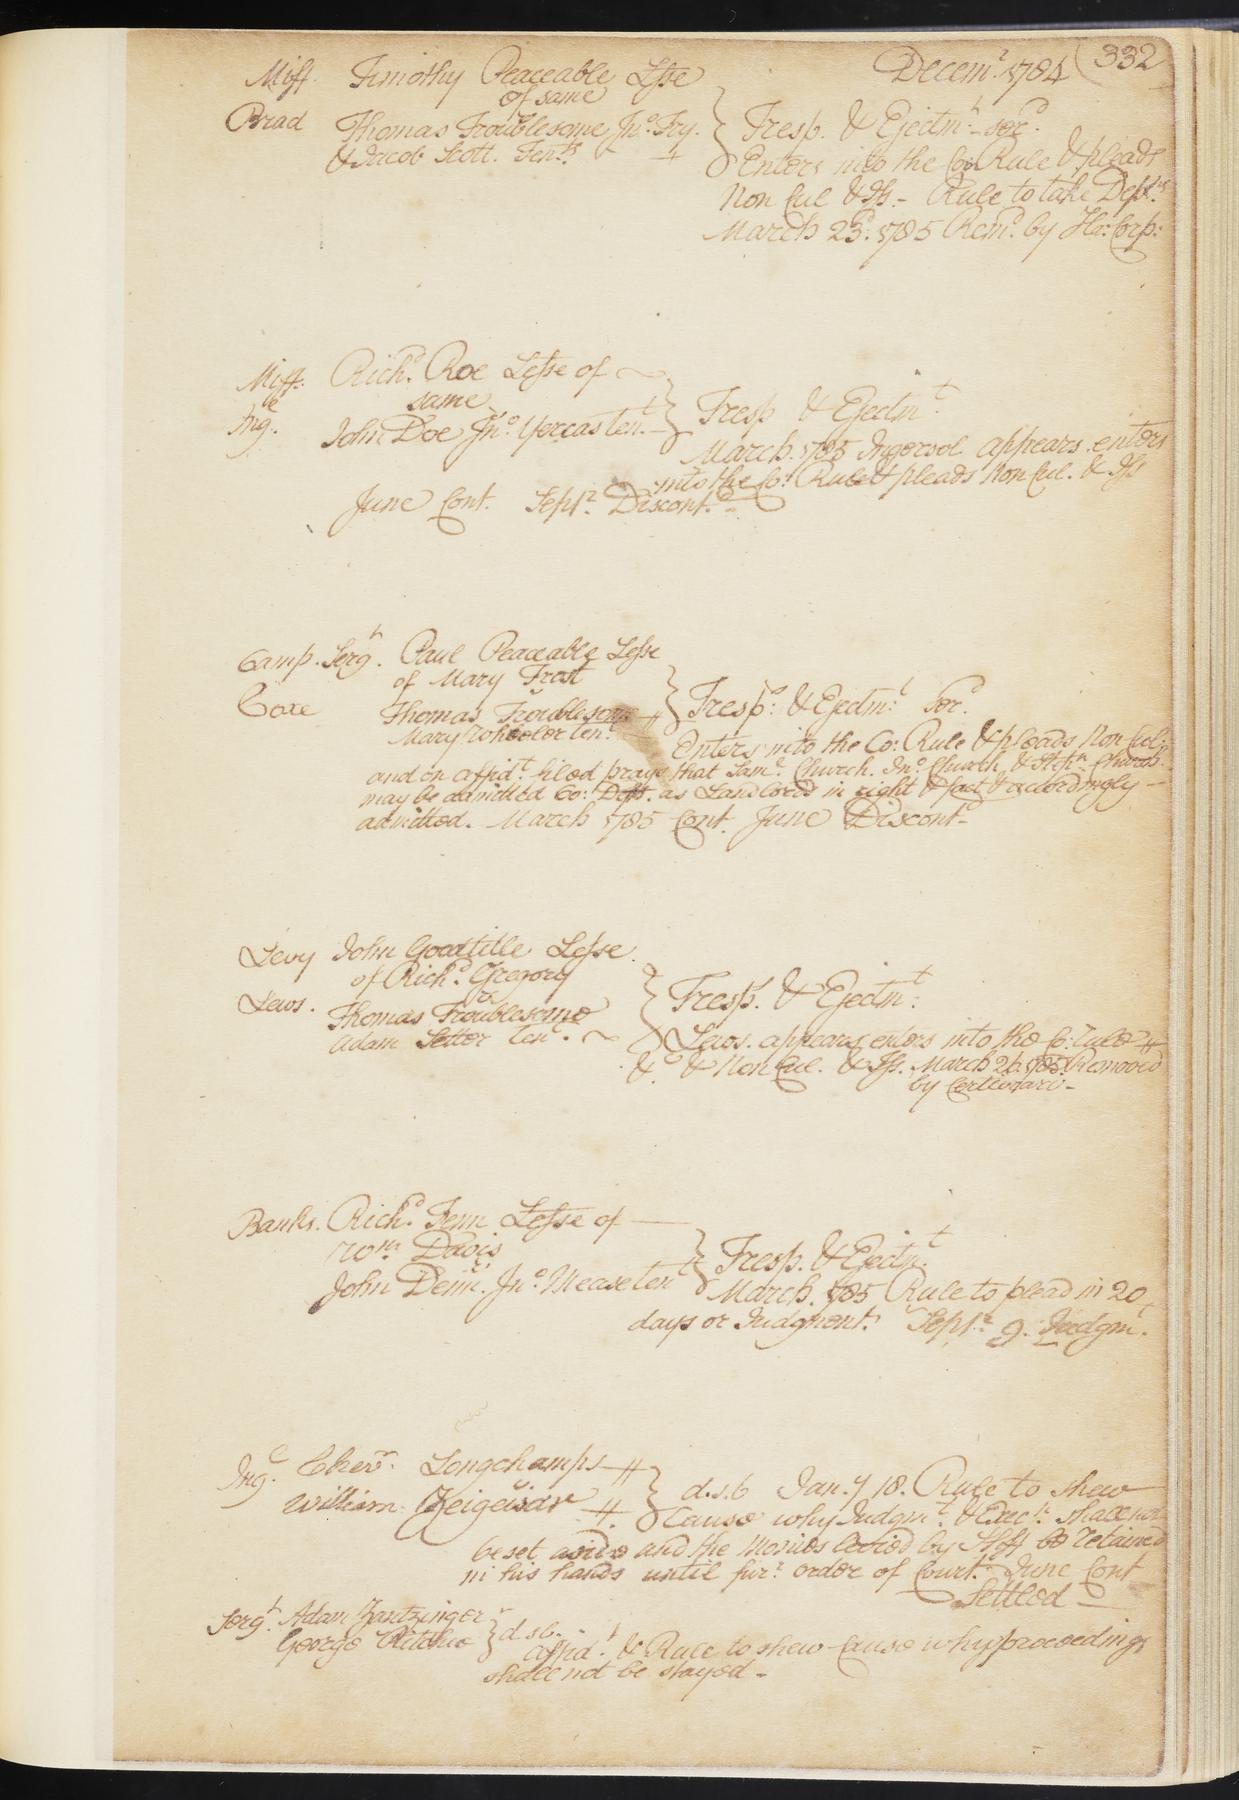 Decemr. 1784 332
Miff. Timothy Peaceable Lesse
of same
Brad Thomas Troublesome Jno. Fry.
& Jacob Scott. Tents.
Tresp. & Ejectmt. - sor.
Enters into the Con Rule & pleads
Non Cul & Iss - Rule to take Depns.
March 23d. 1785 Remd. by Ha: Corp:
Miff. Richd. Roe Lesse of
same
Ing. John Doe Jno. Yercas tent.
Tresp & Ejectmt.
March. 1785 Ingersol appears enters
into the Co: Rule & pleads Non Cul. & Iss
June Cont. Septr. Discontd.
Camp. Sergt. Paul Peaceable Lesse
of Mary Frost
v
Coxe Thomas Troublesome
Mary Wheeler tent.
Tresps. & Ejectmt. Sor.
Enters into the Co: Rule & pleads Non Cul:
and on affidt. filed prays that Saml. Church. Jno. Church & Stepn. Church.
may be admitted Co: Deft. as Landlords in right & fact & accordingly
admitted. March 1785 Cont. June Discontd.
Levy John Goodtitle Lesse
of Richd. Gregory
vs
Lews. Thomas Troublesome
Adam Setter tent.
Tresp. & Ejectmt.
Lews. appears enters into the Co: Rule
&c & Non Cul. & Iss. March 26. 1785 Removed
by Certiorari -
Banks. Richd. Fenn Lesse of
Wm. Davis
v
John Denn. Jno. Mease tent
Tresp. & Ejectmt.
March. 1785 Rule to plead in 20
days or Judgment. Septr. 9. Judgmt.
Inge. Cher. Longchamps
v
William
d.s.b Jan.y 18. Rule to shew
Cause why Judgmt. & Execn. shall not
be set aside and the Monies levied by Shff be retained
in his hands until furr. order of Court. June Cont
Settled
Sergt. Adam Zantzinger
v
George Ritchie
d.s.b.
Affidt. & Rule to shew Cause why proceedings
shall not be stayed -